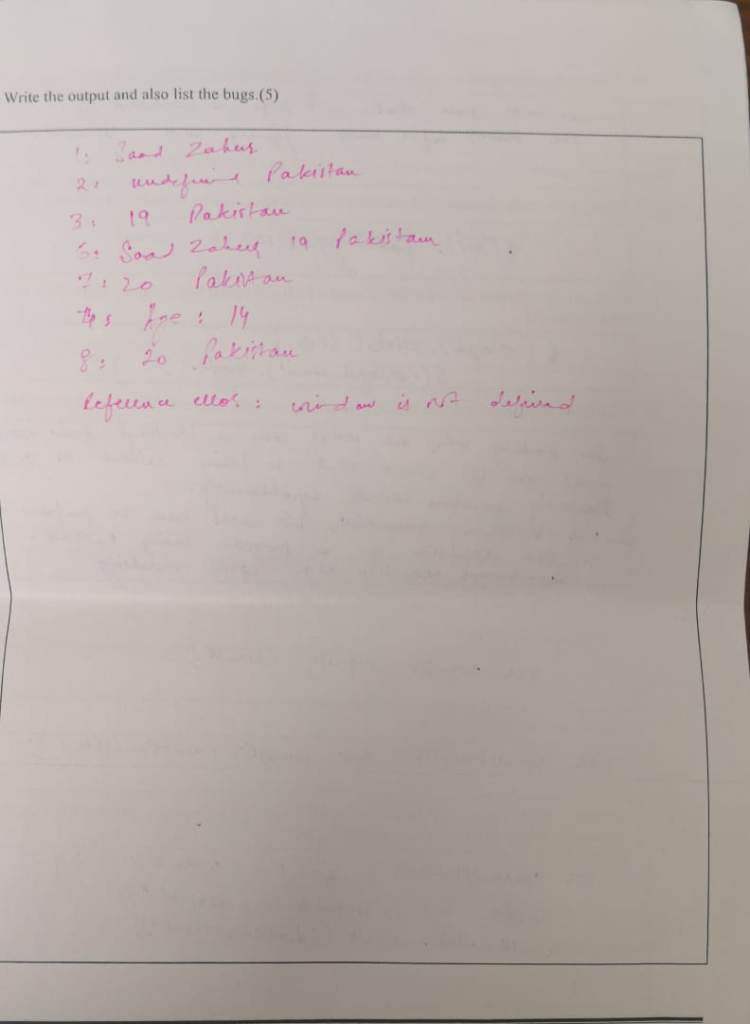 Write the output and also list the bugs.(5)
1: Saad Zaheer
2: undefine Pakistan
3: 19 Pakistan
5: Saad Zaheer 19 Pakistan
7: 20 Pakistan
Age: 14
8: 20 Pakistan
Reference error: window is not defined